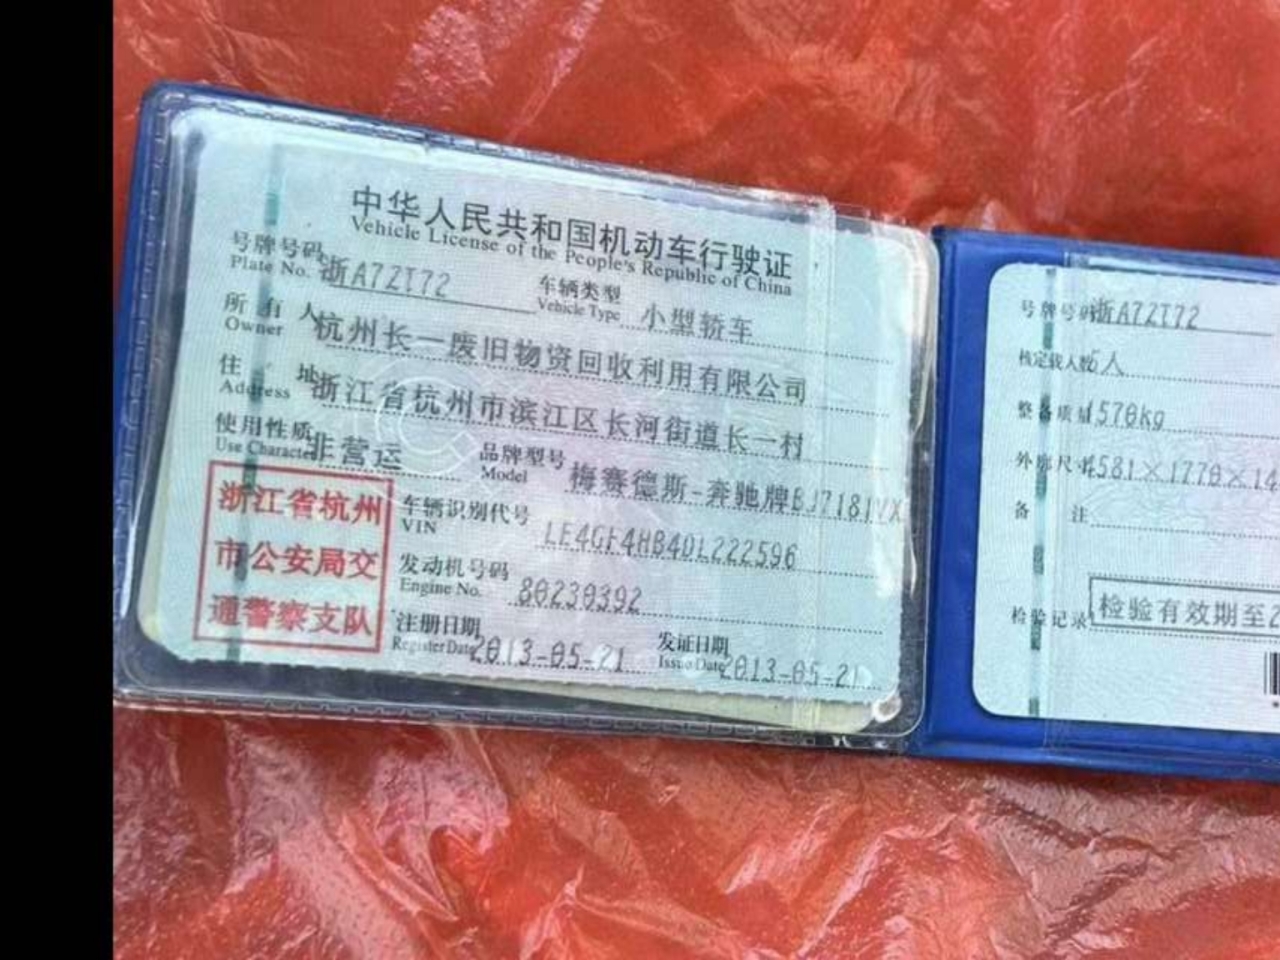 中华人民共和国机动车行驶证
Vehicle License of the People's Republic of China
号牌号码 浙A7ZT72 车辆类型 小型轿车
Plate No. Vehicle Type
所有人 杭州长一废旧物资回收利用有限公司
Owner
住址 浙江省杭州市滨江区长河街道长一村
Address
使用性质 非营运 品牌型号 梅赛德斯-奔驰牌BJ7181VX
Use Character Model
浙江省杭州
市公安局交
通警察支队
车辆识别代号 LE4GF4HB4DL222596
VIN
发动机号码 80230392
Engine No.
注册日期 2013-05-21 发证日期 2013-05-21
Register Date Issue Date
号牌号码 浙A7ZT72
核定载人数 5人
整备质量 1570kg
外廓尺寸 4581×1770×14
备注
检验记录 检验有效期至2